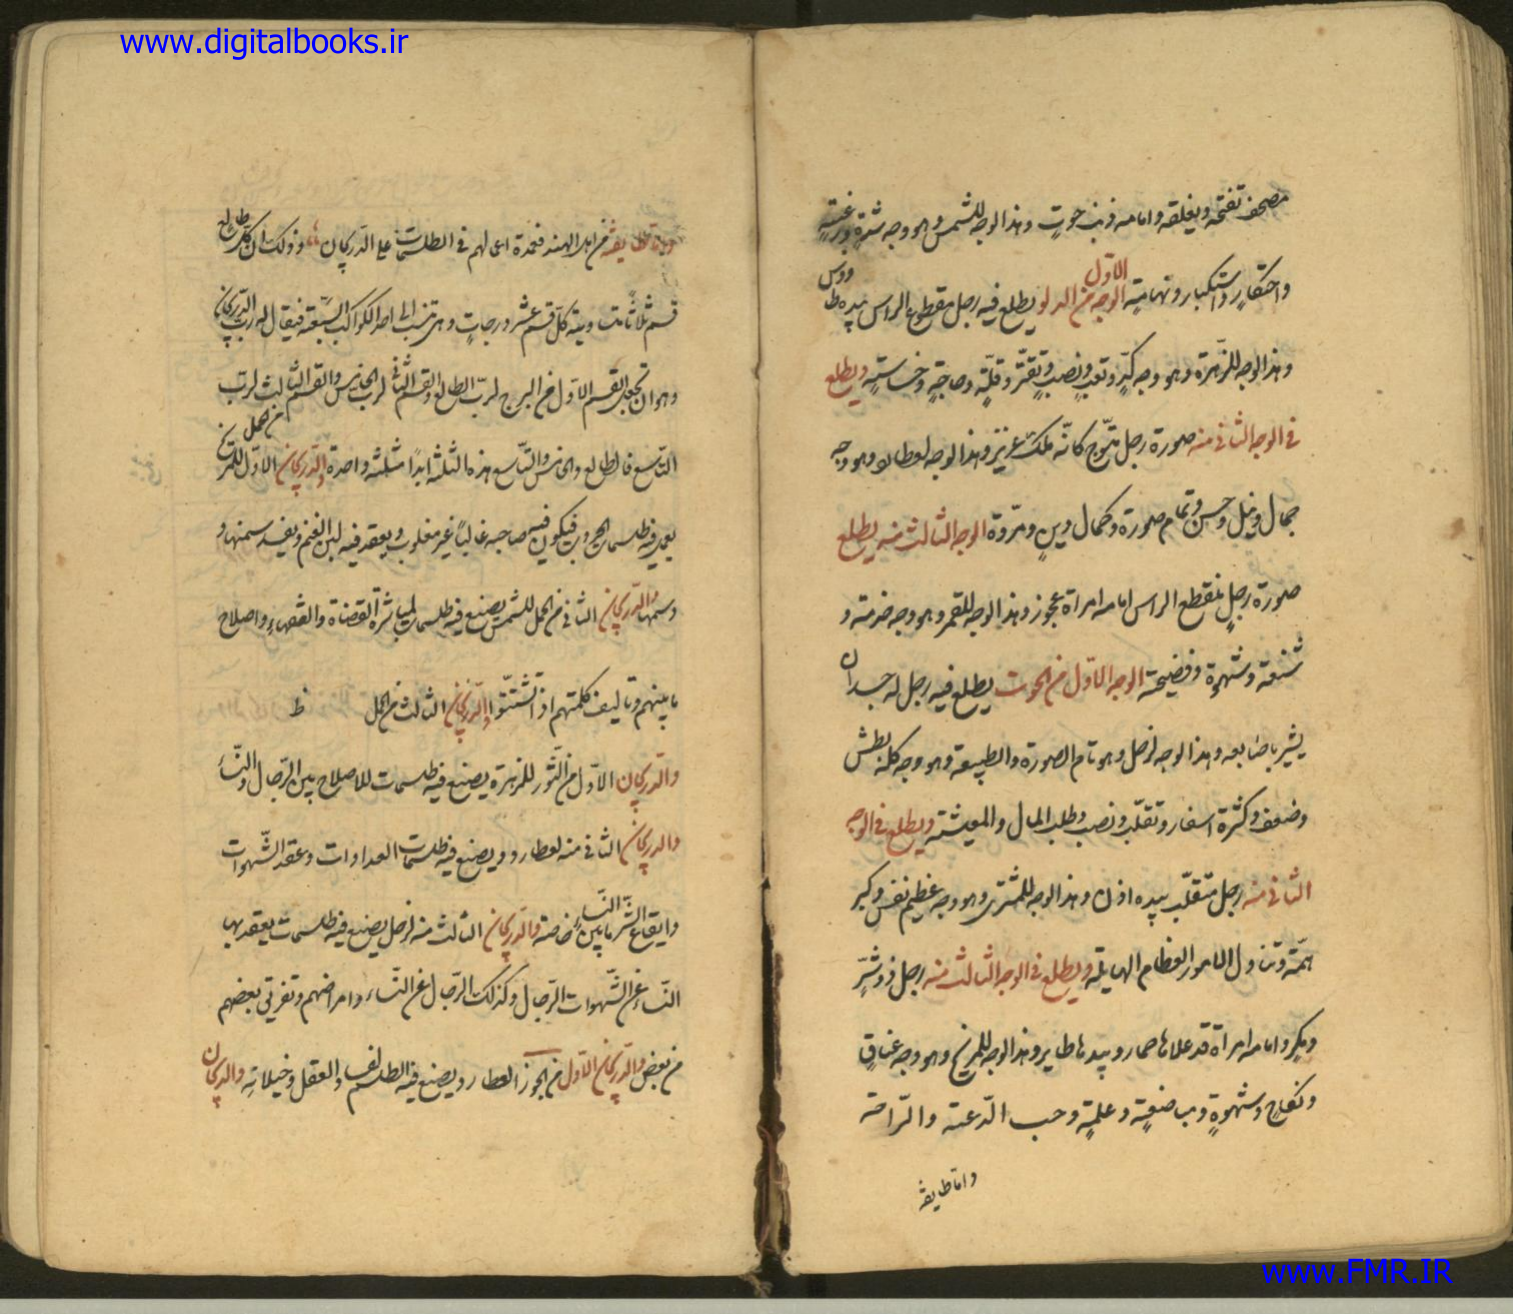 www.digitalbooks.ir
مصحف تفتحه ويغلقه وامامه ذنب حوت وهذا الوجه للشمس وهو وجه شدة ورغبة
واحتقار واستكبار وتهامة الوجه الاول من الدلو يطلع فيه رجل مقطوع الراس بيده طاووس
وهذا الوجه للزهرة وهو وجه كد وتعب ونصب وتقتر وقلة وحاجة وخساسة ويطلع
في الوجه الثاني منه صورة رجل متوج كانه ملك عزيز وهذا الوجه لعطارد وهو وجه
جمال ونيل وحسن وتمام صورة وكمال ودين ومروة الوجه الثالث منه يطلع
صورة رجل منقطع الراس امامه امراة عجوز وهذا الوجه للقمر وهو وجه خدمة و
شنعة وشهرة وفضيحة الوجه الاول من الحوت يطلع فيه رجل له جسدان
يشير باصابعه وهذا الوجه لزحل وهو تام الصورة والطبيعة وهو وجه كله بطش
وضعف وكثرة اسفار وتقلب ونصب وطلب المال والمعيشة ويطلع في الوجه
الثاني منه رجل متقلب بيده اذن وهذا الوجه للمشترى وهو وجه عظيم نفس وكبر
همة وتناول الامور العظام الهايلة ويطلع في الوجه الثالث منه رجل ذو شر
ومكر وامامه امراة قد علاها حمار وبيدها طاير وهذا الوجه للمريخ وهو وجه عناق
ونكاح وشهوة وحب الدعة والراحة
واما طايفة
واما طايفة من اهل الهند فعمدة اعمالهم في الطلسمات على الدريجان وذلك ان لكل طالع
قسم ثلاثا منه كل قسم عشر درجات وهي تنسب الى احد الكواكب السبعة فيقال له رب الدريجان
وهو ان تجعل القسم الاول من البرج لرب الطالع والقسم الثاني لرب الخامس والقسم الثالث لرب
التاسع فالطالع والخامس والتاسع هذه الثلثة ابدا مثلثة واحدة والدريجان الاول من حمل للمريخ
يعمل فيه طلسمات الحروب فيكون فيه صاحبه غالبا غير مغلوب ويعقد فيه لبن الغنم ويفسد سمنها و
دسمها والدريجان الثاني من الحمل للشمس يصنع فيه طلسمات لمباشرة القضاة والفقهاء واصلاح
ما بينهم وتاليف كلمتهم اذا تشتتوا والدريجان الثالث من الحمل ظ
والدريجان الاول من الثور للزهرة يصنع فيه طلسمات للاصلاح بين الرجال والنساء
والدريجان الثاني منه لعطارد ويصنع فيه طلسمات العداوات وعقد الشهوات
وايقاع الشر ما بين النساء خاصة والدريجان الثالث منه لزحل يصنع فيه طلسمات يعقد بها
النساء عن الشهوات الرجال وكذلك الرجال عن النساء وامراضهم وتفريق بعضهم
من بعض والدريجان الاول من الجوزا لعطارد ويصنع فيه الطلسم والعقل وخيلاته والدريجان
www.FMR.IR